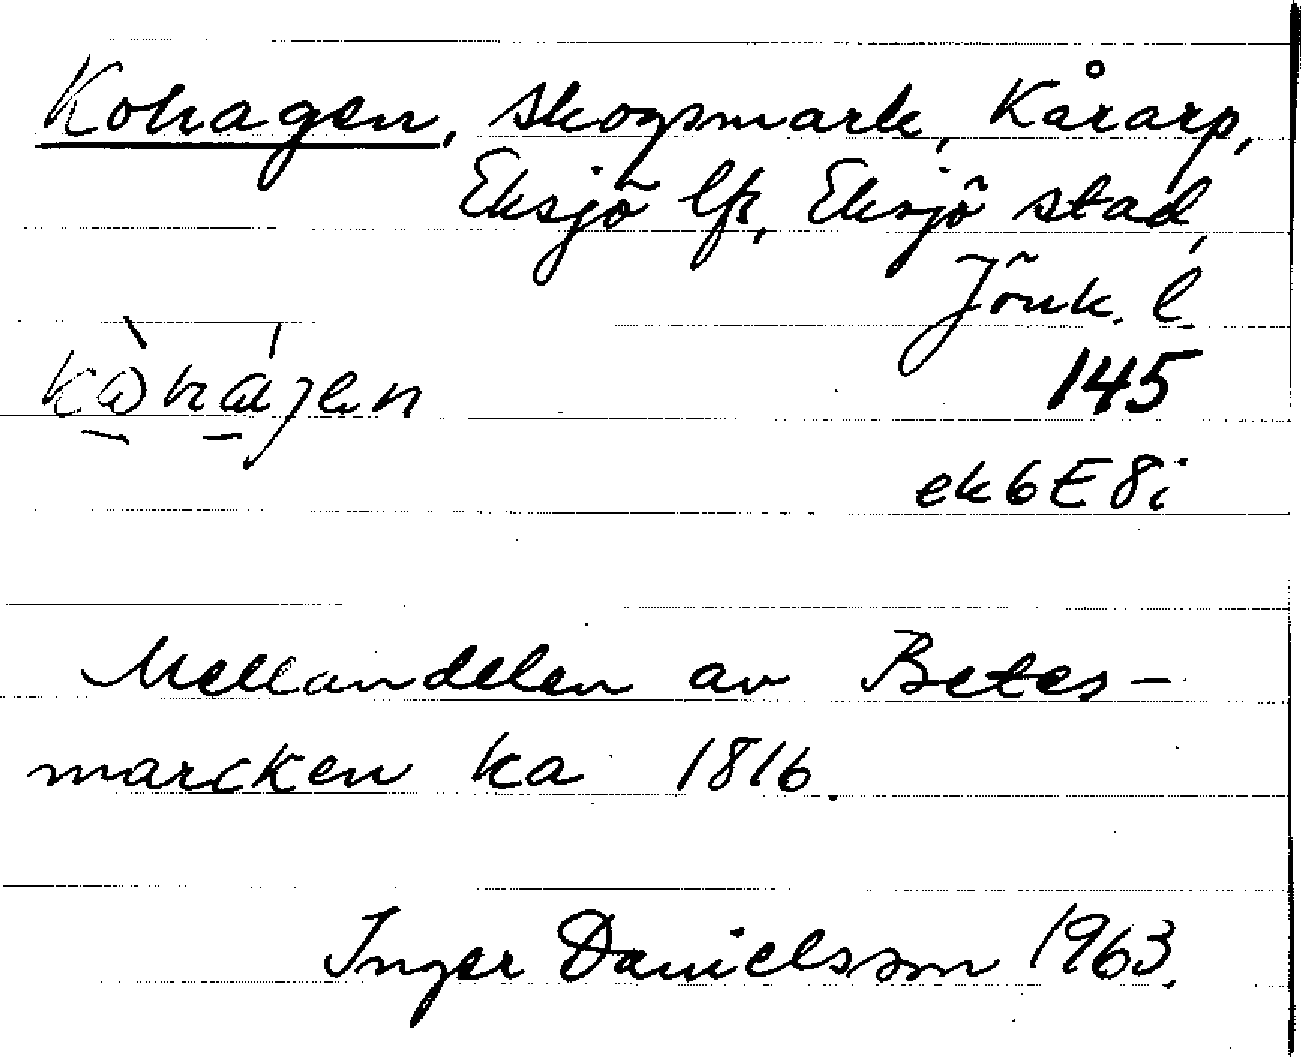 Kohagen, skogsmark, Kårarp,
Eksjö lfs, Eksjö stad,
Jönk. l.
145
ek 6E8i
Mellandelen av Betes-
marcken ka 1816.
Inger Danielsson 1963.